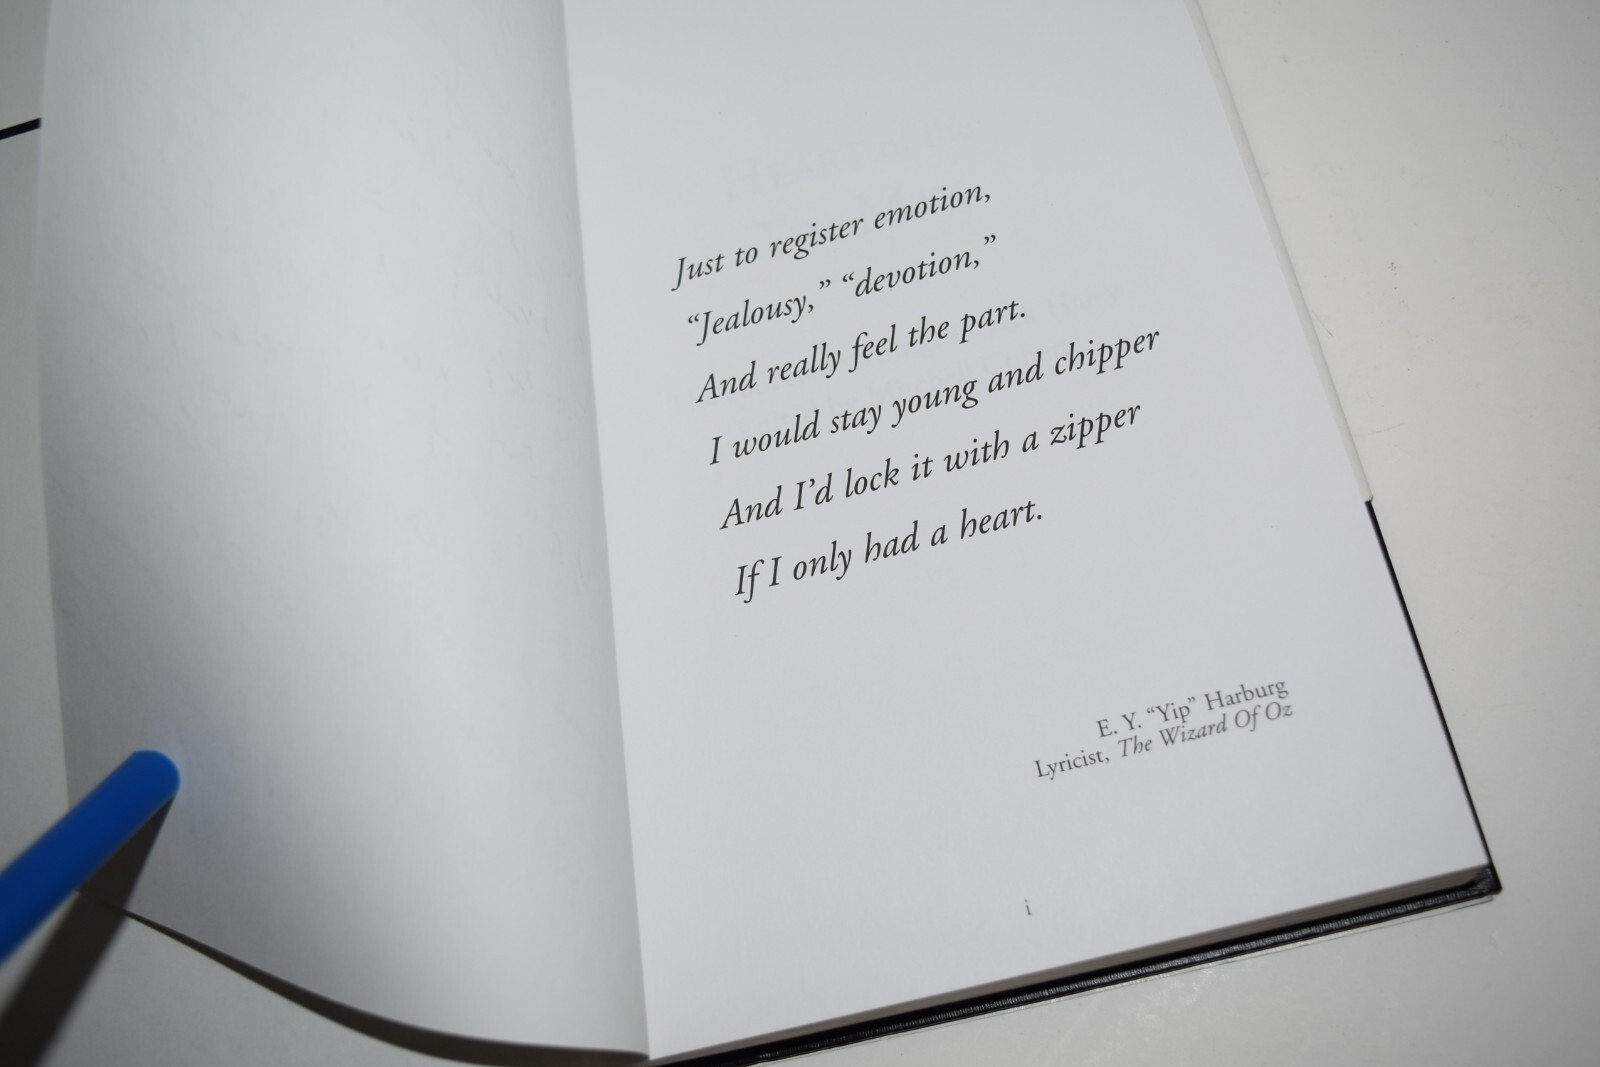 Just to register emotion,
“Jealousy,” “devotion,”
And really feel the part.
I would stay young and chipper
And I’d lock it with a zipper
If I only had a heart.
E. Y. “Yip” Harburg
Lyricist, The Wizard Of Oz
i